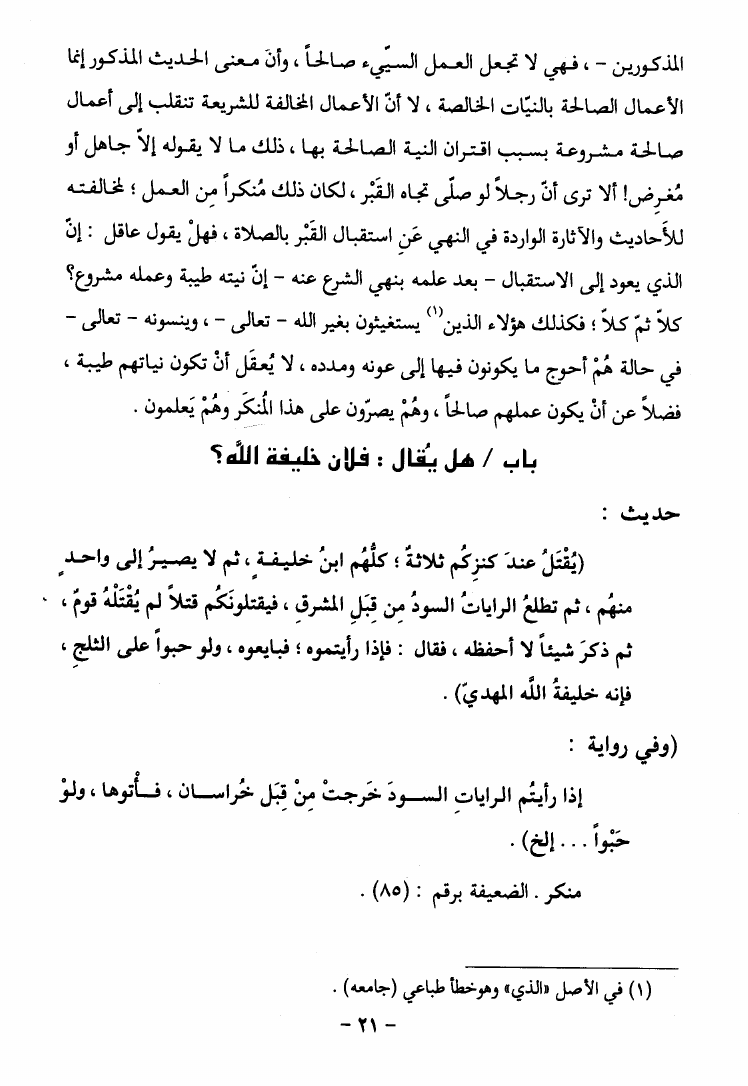 المذكورين - ، فهي لا تجعل العمل السيّيء صالحاً ، وأنَ معنى الحديث المذكور إنما
الأعمال الصالحة بالنيّات الخالصة ، لا أنّ الأعمال المخالفة للشريعة تنقلب إلى أعمال
صالحة مشروعة بسبب اقتران النية الصالحة بها ، ذلك ما لا يقوله إلاّ جاهل أو
مُغرِض! ألا ترى أنّ رجلاً لو صلّى تجاه القَبْر ، لكان ذلك مُنكراً مِن العمل ؛ لمخالفته
للأحاديث والآثارة الواردة في النهي عَنِ استقبال القَبْر بالصلاة ، فهلْ يقول عاقل : إنّ
الذي يعود إلى الاستقبال - بعد علمه بنهي الشرع عنه - إنّ نيته طيبة وعمله مشروع؟
كلاّ ثمّ كلاّ ؛ فكذلك هؤلاء الذين(١) يستغيثون بغير الله - تعالى - ، وينسونه - تعالى -
في حالة هُمْ أحوج ما يكونون فيها إلى عونه ومدده ، لا يُعقَل أنْ تكون نياتهم طيبة ،
فضلاً عن أنْ يكون عملهم صالحاً ، وهُمْ يصرّون على هذا المُنكَر وهُمْ يَعلمون .
باب / هل يُقال : فلان خليفة اللَّه؟
حديث :
(يُقْتَلُ عندَ كنزِكُم ثلاثةٌ ؛ كلُّهُم ابنُ خليفةٍ ، ثم لا يصيرُ إلى واحدٍ
منهُم ، ثم تطلعُ الراياتُ السودُ مِن قِبَلِ المشرق ، فيقتلونَكُم قتلاً لم يُقْتَلْهُ قومٌ ،
ثم ذكرَ شيئاً لا أحفظه ، فقال : فإذا رأيتموه ؛ فبايعوه ، ولو حبواً على الثلجِ ،
فإنه خليفةُ اللَّه المهديّ) .
(وفي رواية :
إذا رأيتُم الراياتِ السودَ خَرجتْ مِنْ قِبَل خُراسان ، فأْتوها ، ولوْ
حَبْواً ... إلخ) .
منكر . الضعيفة برقم : (٨٥) .
(١) في الأصل «الذي» وهوخطأ طباعي (جامعه) .
- ٢١ -